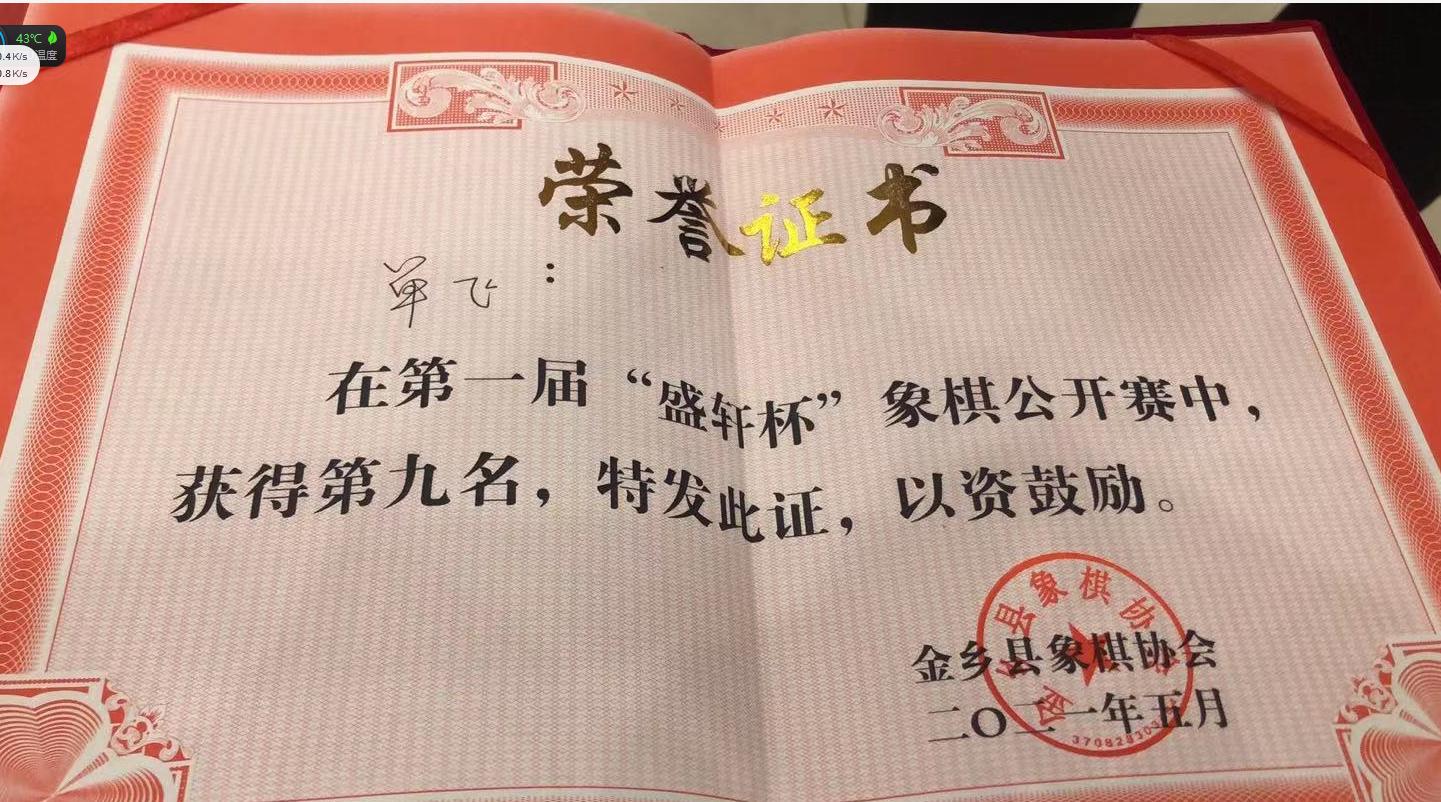 43℃
0.4K/s
温度
0.8K/s
荣誉证书
单飞：
在第一届“盛轩杯”象棋公开赛中，
获得第九名，特发此证，以资鼓励。
金乡县象棋协会
金乡县象棋协会
二〇二一年五月